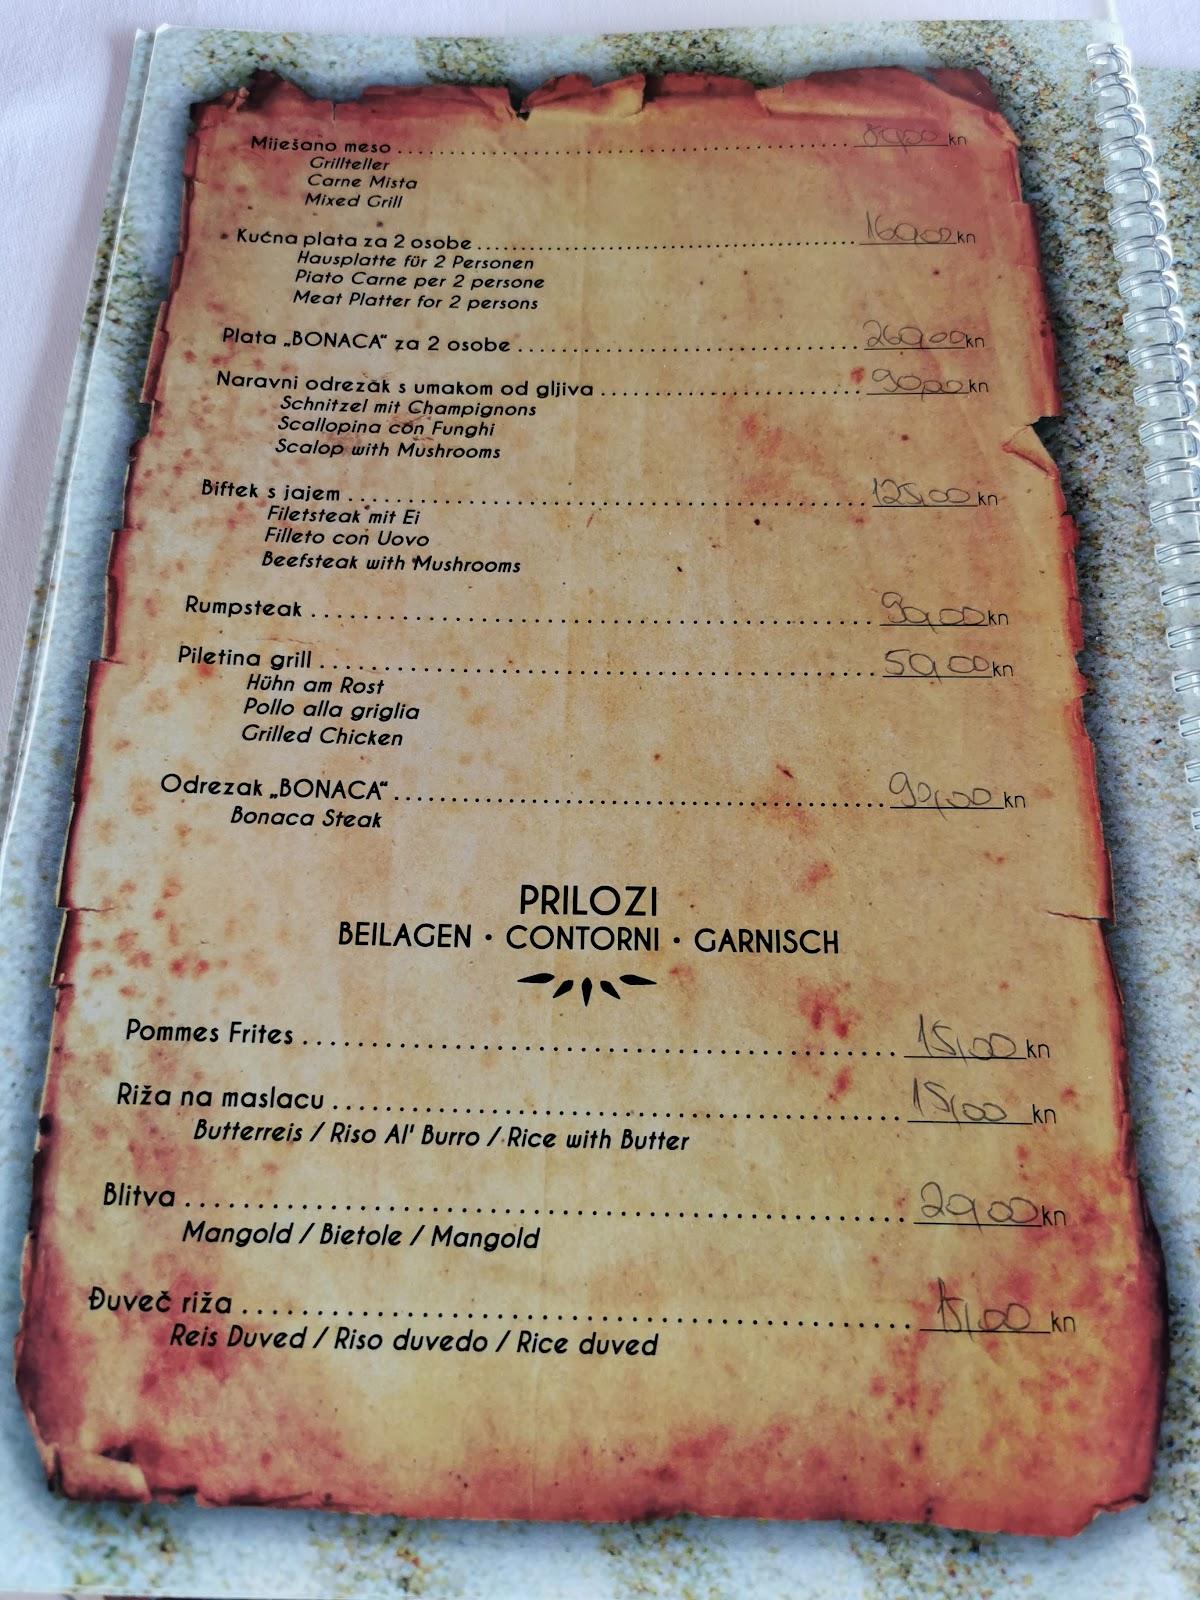 Miješano meso ........ kn
Grillteller
Carne Mista
Mixed Grill
Kućna plata za 2 osobe ........ 160,00 kn
Hausplatte für 2 Personen
Piato Carne per 2 persone
Meat Platter for 2 persons
Plata „BONACA“ za 2 osobe ........ 260,00 kn
Naravni odrezak s umakom od gljiva ........ 90,00 kn
Schnitzel mit Champignons
Scallopina con Funghi
Scalop with Mushrooms
Biftek s jajem ........ 125,00 kn
Filetsteak mit Ei
Filleto con Uovo
Beefsteak with Mushrooms
Rumpsteak ........ 90,00 kn
Piletina grill ........ 50,00 kn
Hühn am Rost
Pollo alla griglia
Grilled Chicken
Odrezak „BONACA“ ........ 90,00 kn
Bonaca Steak
PRILOZI
BEILAGEN • CONTORNI • GARNISCH
Pommes Frites ........ 15,00 kn
Riža na maslacu ........ 15,00 kn
Butterreis / Riso Al' Burro / Rice with Butter
Blitva ........ 20,00 kn
Mangold / Bietole / Mangold
Đuveč riža ........ 15,00 kn
Reis Duved / Riso duvedo / Rice duved